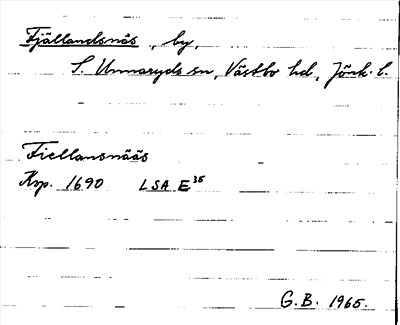 Fjällandsnäs, by,
S. Unnaryds sn, Västbo hd, Jönk. l.
Fiellansnääs
Kop. 1690 LSA E³⁵
G.B. 1965.